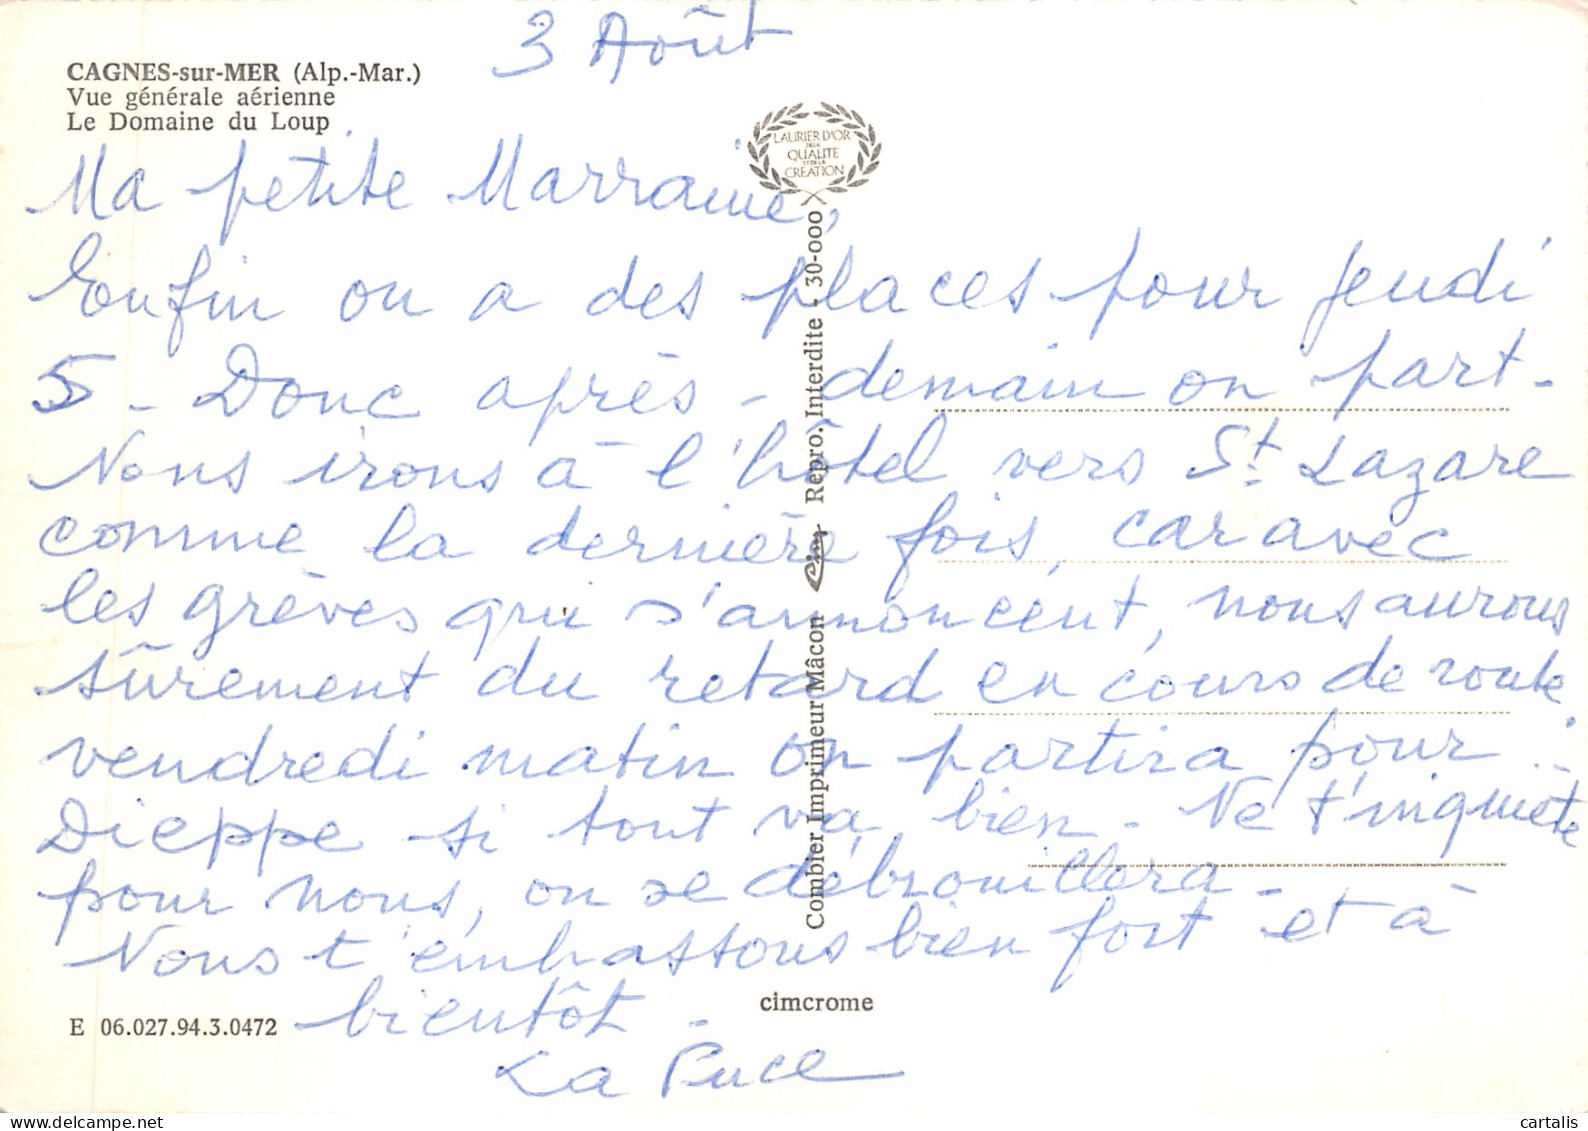 3 Août
CAGNES-sur-MER (Alp.-Mar.)
Vue générale aérienne
Le Domaine du Loup
LAURIER D'OR
DE LA
QUALITE
ET DE LA
CREATION
Ma petite Marraine,
Enfin on a des places pour jeudi
5 - Donc après - demain on part -
Nous irons à l'hôtel vers St. Lazare
comme la dernière fois, car avec
les grèves qui s'annoncent, nous aurons
sûrement du retard en cours de route.
vendredi matin on partira pour
Dieppe si tout va bien - Ne t'inquiète
pour nous, on se débrouillera -
Nous t'embrassons bien fort et à
bientôt -
La Puce
Combier Imprimeur Mâcon Cim Repro. Interdite - 30-000
cimcrome
E 06.027.94.3.0472
delcampe.net
cartalis